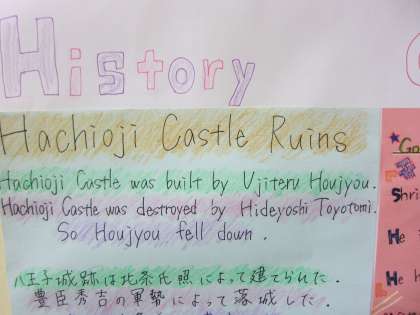 History
Hachioji Castle Ruins
Hachioji Castle was built by Ujiteru Houjyou.
Hachioji Castle was destroyed by Hideyoshi Toyotomi.
So Houjyou fell down.
八王子城跡は北条氏照によって建てられた.
豊臣秀吉の軍勢によって落城した.
Go
Shri
He
He h